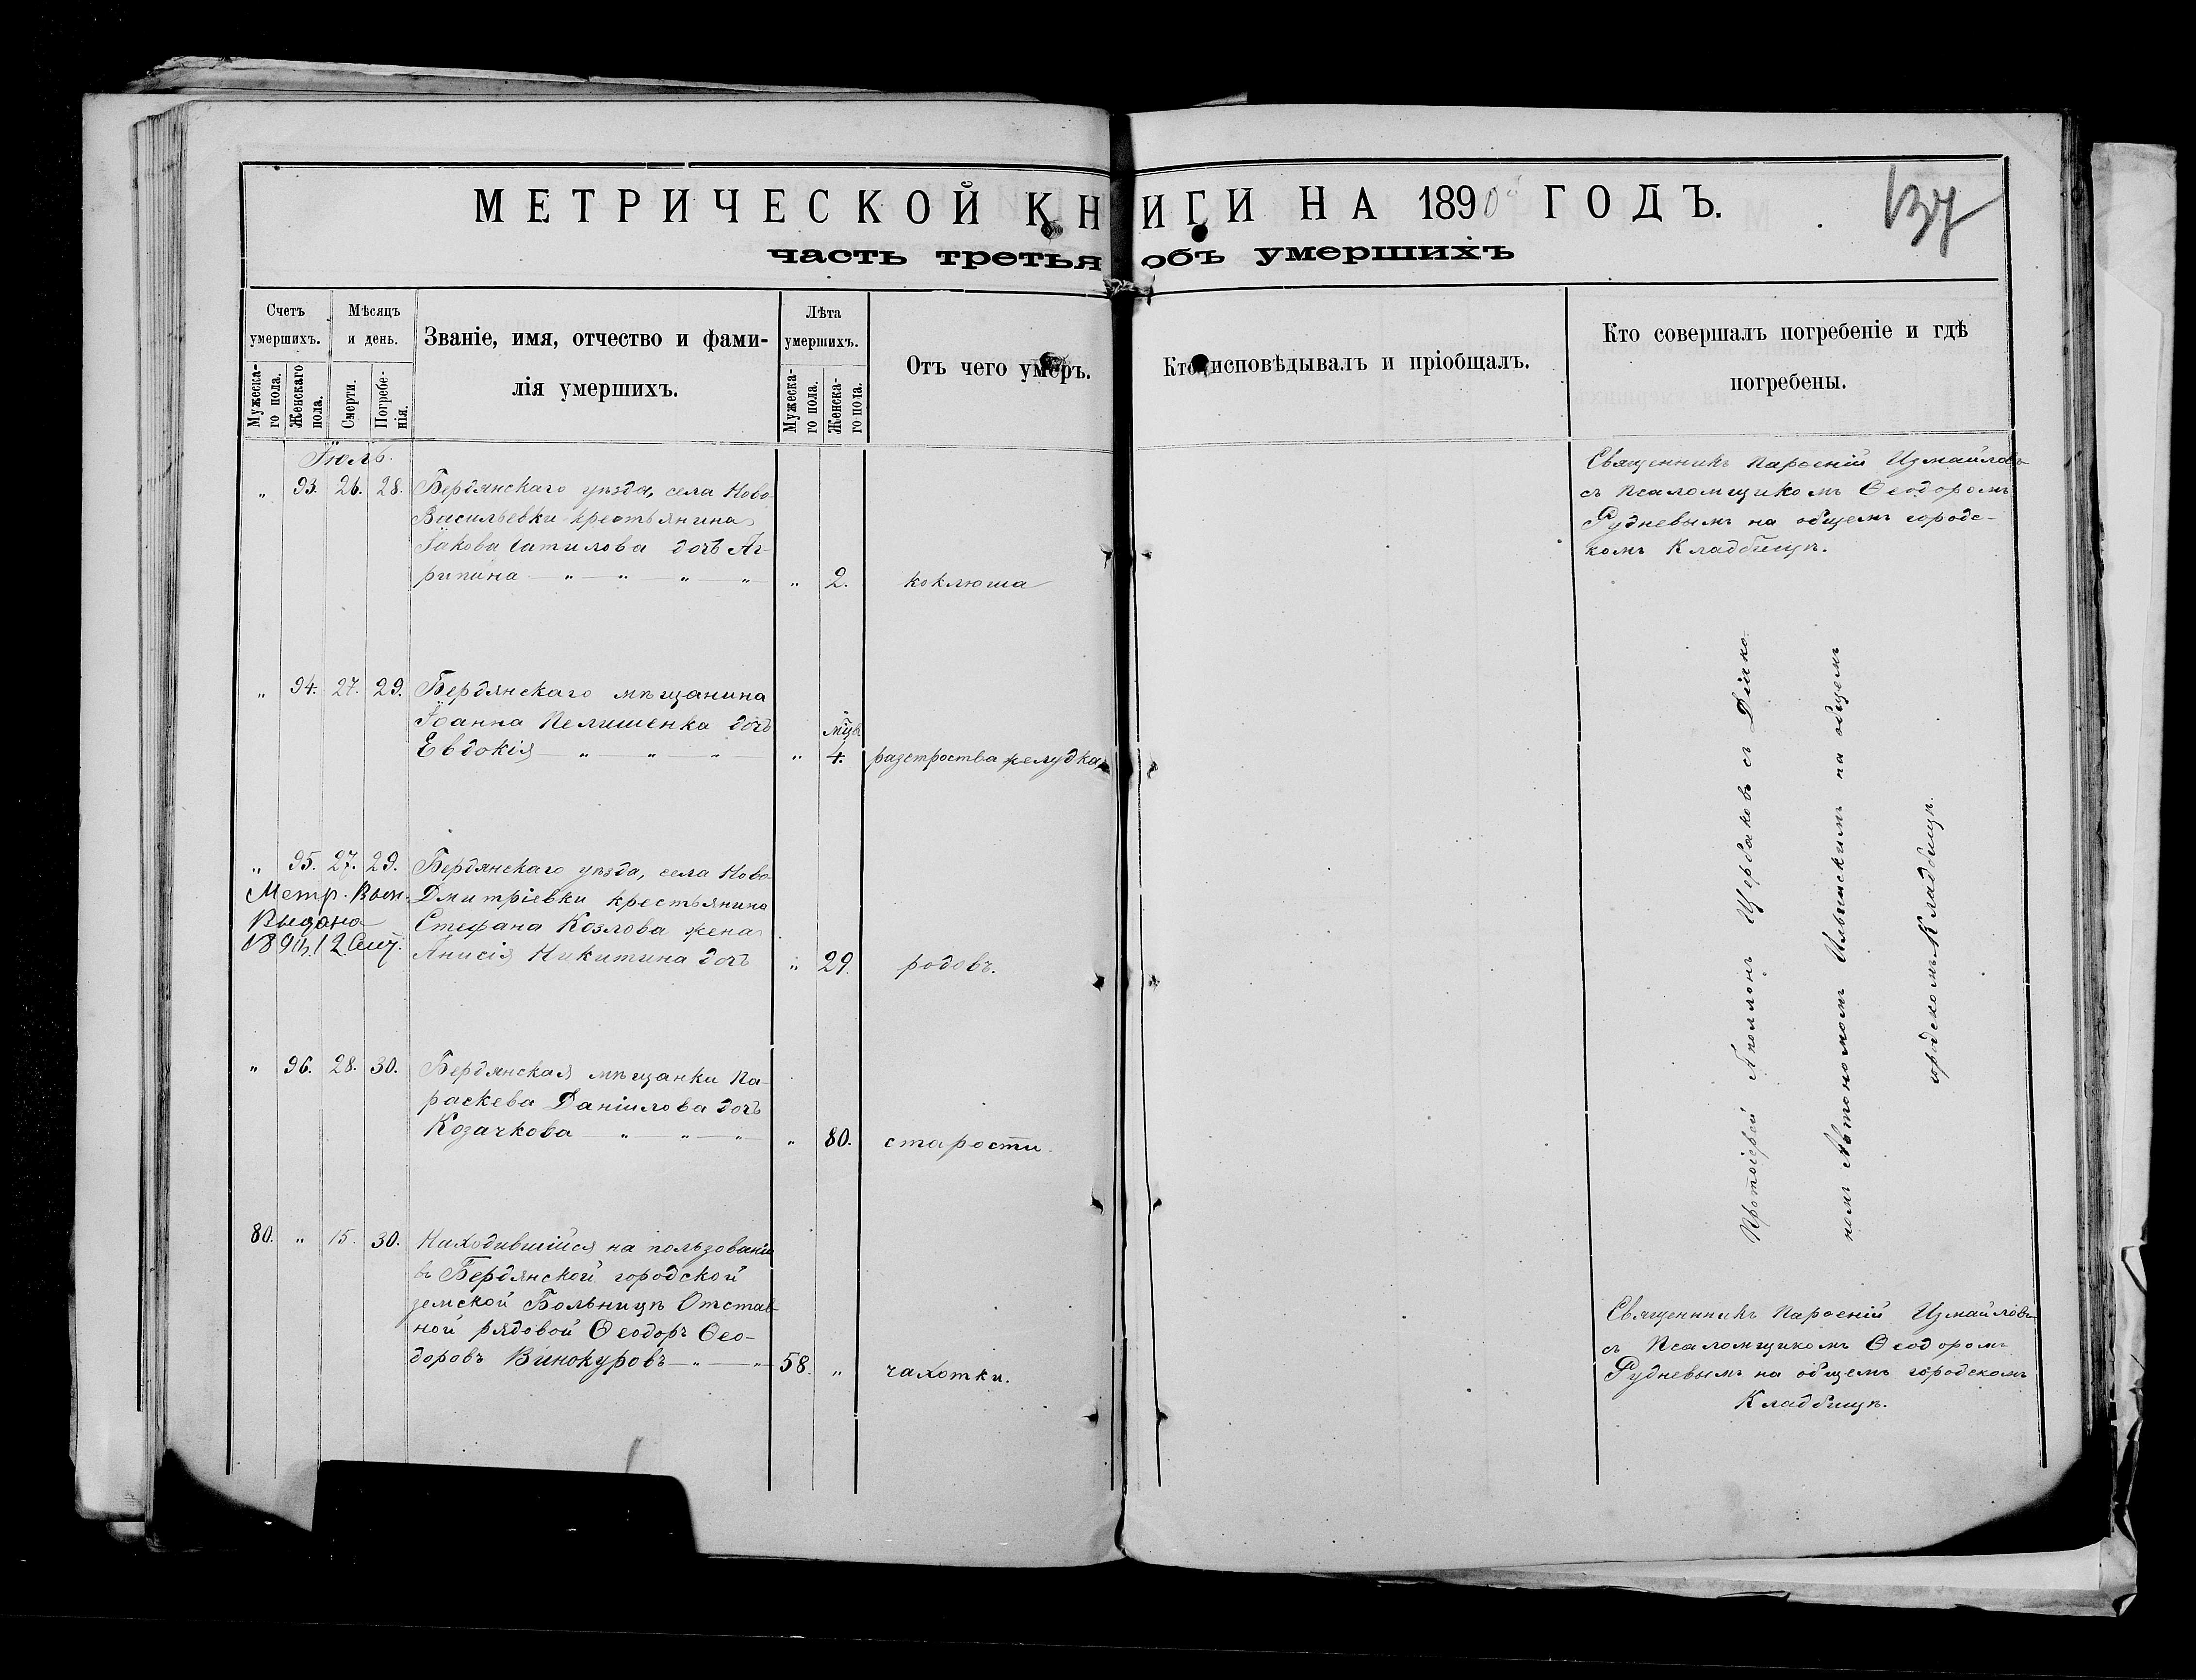 МЕТРИЧЕСКОЙ КНИГИ НА 1890й ГОДЪ.
137
часть третья объ умершихъ
Счетъ умершихъ.
Мужеска-го пола.
Женскаго пола.
Мѣсяцъ и день.
Смерти.
Погребе-нія.
Званіе, имя, отчество и фами-
лія умершихъ.
Лѣта умершихъ.
Мужеска-го пола.
Женска-го пола.
Отъ чего умеръ.
Кто исповѣдывалъ и пріобщалъ.
Кто совершалъ погребеніе и гдѣ
погребены.
Іюль.
„ 93. 26. 28. Бердянскаго уѣзда, села Ново-
Васильевки крестьянина
Іакова Шатилова дочь Аг-
рипина — „ — „ — „ — „ „ 2. коклюша
Священникъ Парѳеній Измайловъ
съ Псаломщикомъ Ѳеодоромъ
Рудневымъ на общемъ городс-
комъ Кладбищѣ.
„ 94. 27. 29. Бердянскаго мѣщанина
Іоанна Пелишенка дочь
Евдокія — „ — „ — „ — „ мцъ 4. разстроства желудка
„ 95. 27. 29. Бердянскаго уѣзда, села Ново-
Дмитріевки крестьянина
Стефана Козлова жена
Анисія Никитина дочь „ 29. родовъ.
Метр. Вып.
Выдана
„ 96. 28. 30. Бердянская мѣщанки Па-
раскева Даніилова дочь
Козачкова — „ — „ — „ — „ 80. старости.
Протоіерей Аполлонъ Щербаковъ съ Діако-
номъ Автономомъ Ильинскимъ на общемъ
городскомъ Кладбищѣ.
80. „ 15. 30. Находившійся на пользованіи
въ Бердянской городской
земской Больницѣ Отстав-
ной рядовой Ѳеодоръ Ѳео-
доровъ Винокуровъ — „ — „ 58. „ чахотки.
Священникъ Парѳеній Измайловъ
съ Псаломщикомъ Ѳеодоромъ
Рудневымъ на общемъ городскомъ
Кладбищѣ.